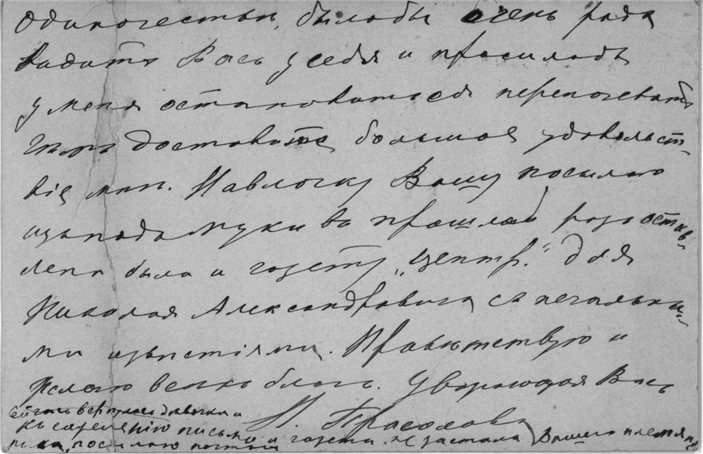 одиночестви, была бы очень рада
видить Вась у себя и просила бъ
у меня остановиться переночевать
доставите большое удовольст-
віе мни. Наволочку Вашу посылаю
изъ подъ муки въ прошлый разъ остав-
лена была и газету „Центр.“ для
Николая Александровича съ печальны-
ми извѣстіями. Привѣтствую и
желаю всехъ благъ. Уважающая Васъ
Н. Прасолова
Сейчасъ вернулась девочка и
къ сожалѣнію письмо и газета не застала Вашего племян-
ника, посылаю почтой